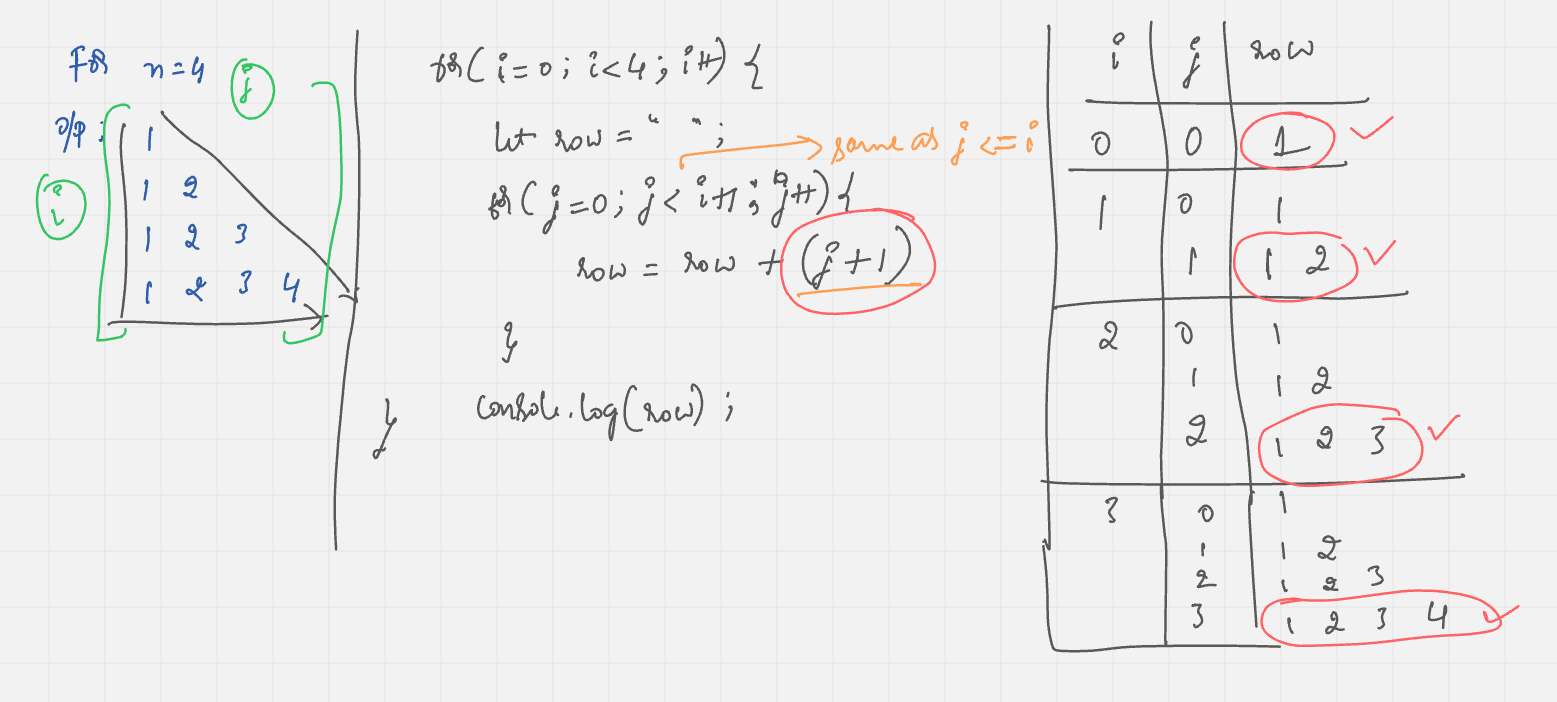 For n=4
j
O/P :
i
1
1 2
1 2 3
1 2 3 4
for( i=0; i<4; i++) {
let row = " ";
same as j <= i
for( j=0; j< i+1; j++){
row = row + (j+1)
}
console.log(row);
}
i j row
0 0 1
1 0 1
1 1 2
2 0 1
1 1 2
2 1 2 3
3 0 1
1 1 2
2 1 2 3
3 1 2 3 4